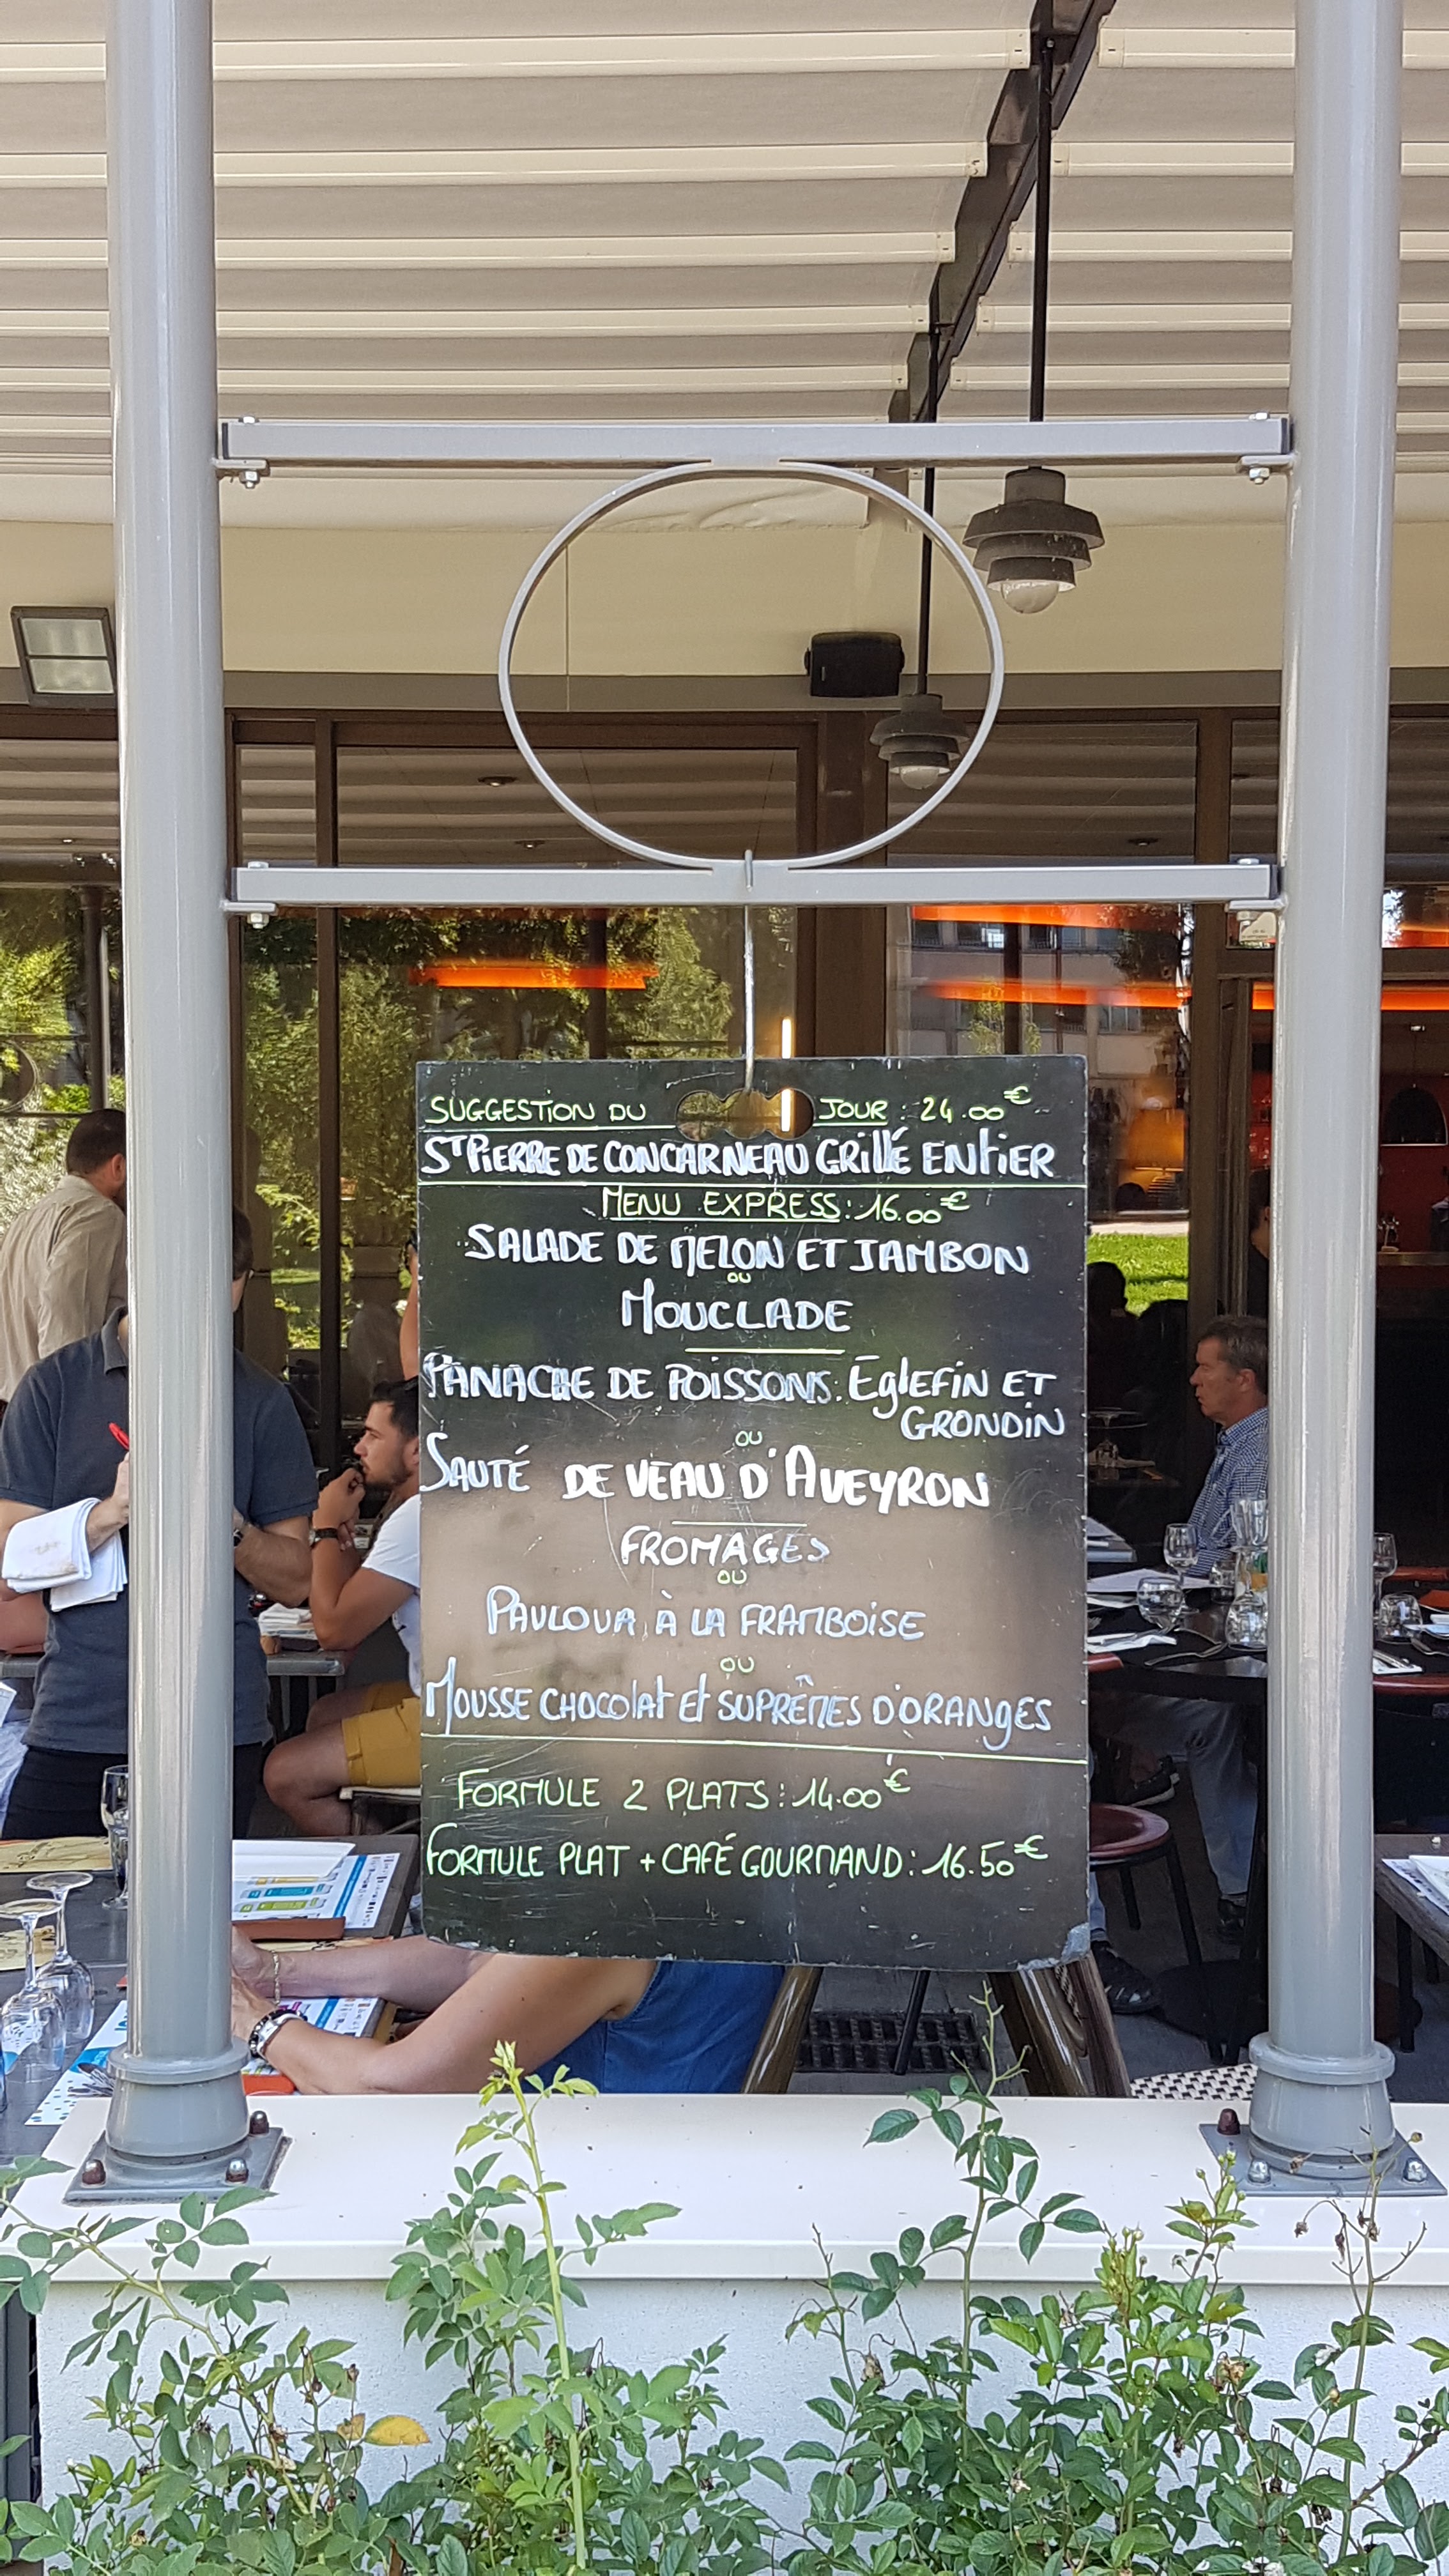 SUGGESTION DU JOUR : 24.00€
ST PIERRE DE CONCARNEAU GRILLÉ ENTIER
MENU EXPRESS : 16.00€
SALADE DE MELON ET JAMBON
OU
MOUCLADE
PANACHE DE POISSONS : EGLEFIN ET
GRONDIN
OU
SAUTÉ DE VEAU D'AVEYRON
FROMAGES
OU
PAVLOVA À LA FRAMBOISE
OU
MOUSSE CHOCOLAT ET SUPRÊMES D'ORANGES
FORMULE 2 PLATS : 14.00€
FORMULE PLAT + CAFÉ GOURMAND : 16.50€